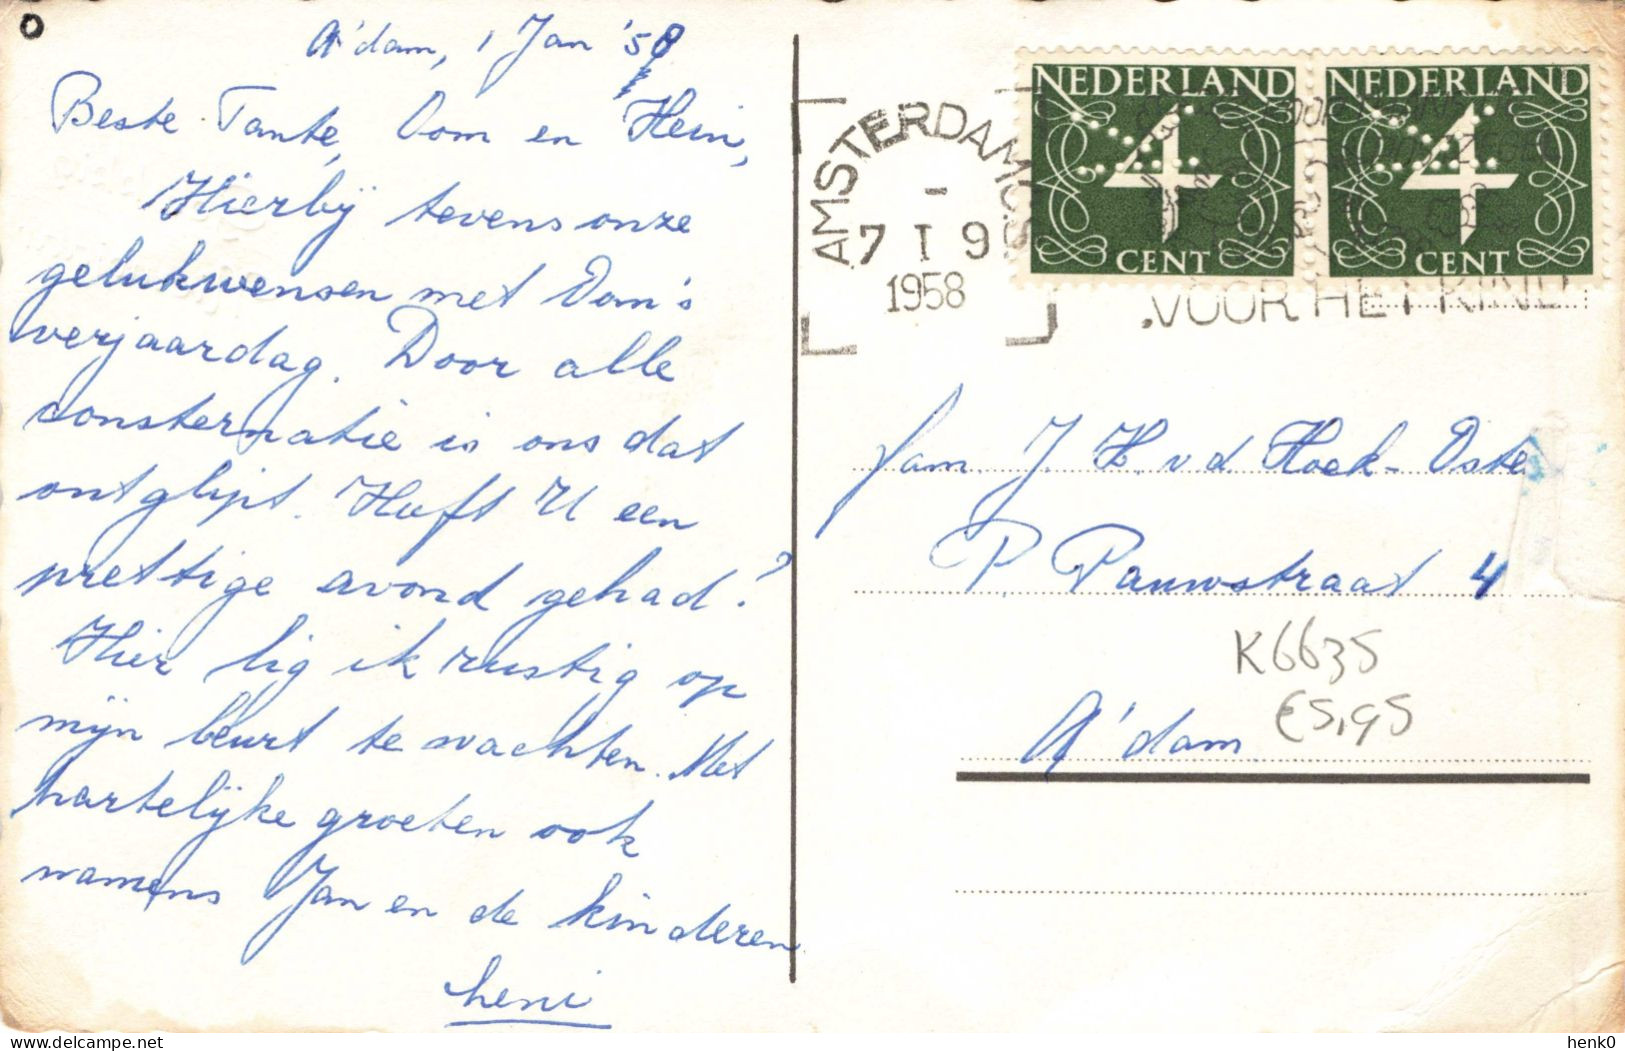 A'dam, 1 Jan '58
Beste Tante, Oom en Hein,
Hierbij tevens onze
gelukwensen met Oom's
verjaardag. Door alle
consternatie is ons dat
ontglipt. Heeft U een
prettige avond gehad?
Hier lig ik rustig op
mijn beurt te wachten. Met
hartelijke groeten ook
namens Jan en de kinderen
heni
NEDERLAND
4
CENT
NEDERLAND
4
CENT
AMSTERDAM C.S.
-
7 I 9
1958
VOOR HET KIND
fam. J. H. v d Hoek-Oste
P. Pauwstraat 4
K6635
€5,95
A'dam
henk0